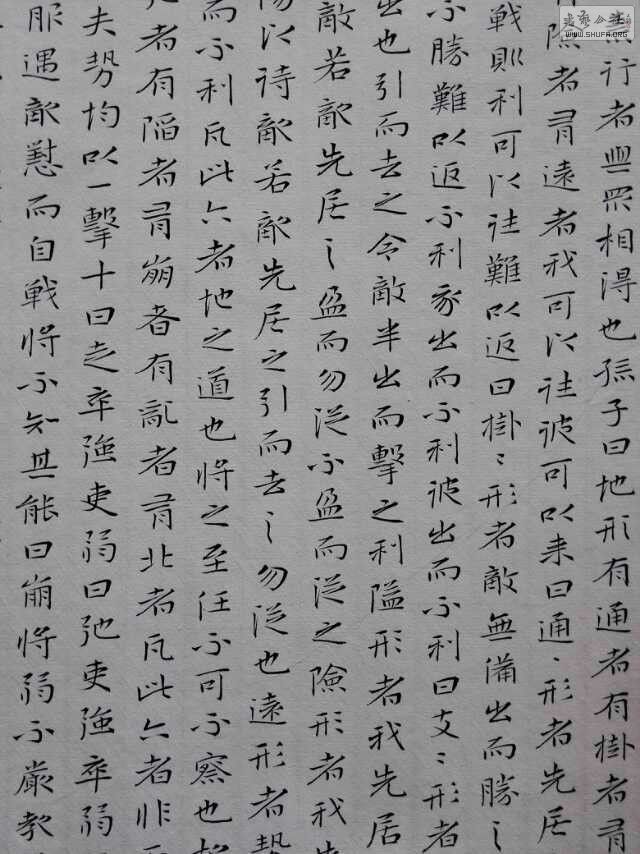 行者與眾相得也孫子曰地形有通者有掛者有
險者有遠者我可以往彼可以来曰通〻形者先居
戰則利可以往難以返曰掛〻形者敵無備出而勝之
不勝難以返不利我出而不利彼出而不利曰支〻形者
出也引而去之令敵半出而擊之利隘形者我先居
敵若敵先居之盈而勿從不盈而從之險形者我先
陽以待敵若敵先居之引而去之勿從也遠形者勢
而不利凡此六者地之道也將之至任不可不察也
者有陷者有崩者有亂者有北者凡此六者非
夫勢均以一擊十曰走卒強吏弱曰弛吏強卒弱
服遇敵懟而自戰將不知其能曰崩將弱不嚴教
WWW.SHUFA.ORG